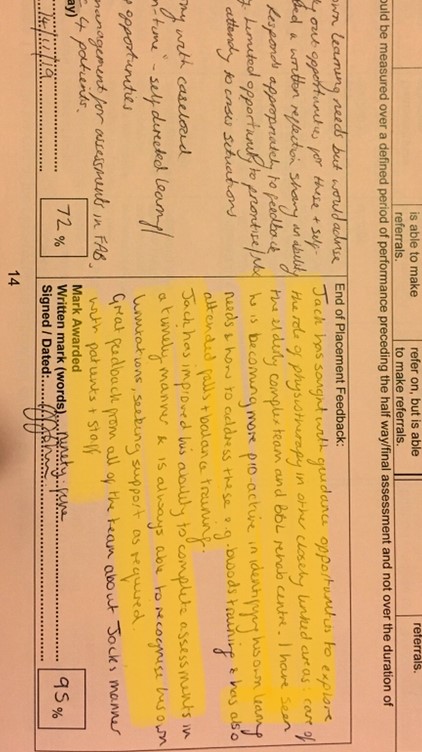 ould be measured over a defined period of performance preceding the half way/final assessment and not over the duration of
is able to make
referrals.
refer on, but is able
to make referrals.
referrals.
own learning needs but would advise
out opportunities for these + self-
a written reflection showing an ability
Responds appropriately to feedback
Limited opportunity to prioritise
attending to crisis situations
with caseload
time - self directed learning
opportunities
management for assessments in FAB.
4 patients.
ay)
14/11/19
72 %
End of Placement Feedback:
Jack has sought with guidance opportunities to explore
the role of physiotherapy in other closely linked areas: care of
the elderly complex team and rehab centre. I have seen
he is becoming more pro-active in identifying his own learning
needs & how to address these e.g. bloods training & has also
attended falls + balance training.
Jack has improved his ability to complete assessments in
a timely manner & is always able to recognise his own
limitations, seeking support as required.
Great feedback from all of the team about Jack's manner
with patients + staff
Mark Awarded
Written mark (words) ninety-five
Signed / Dated:
95 %
14